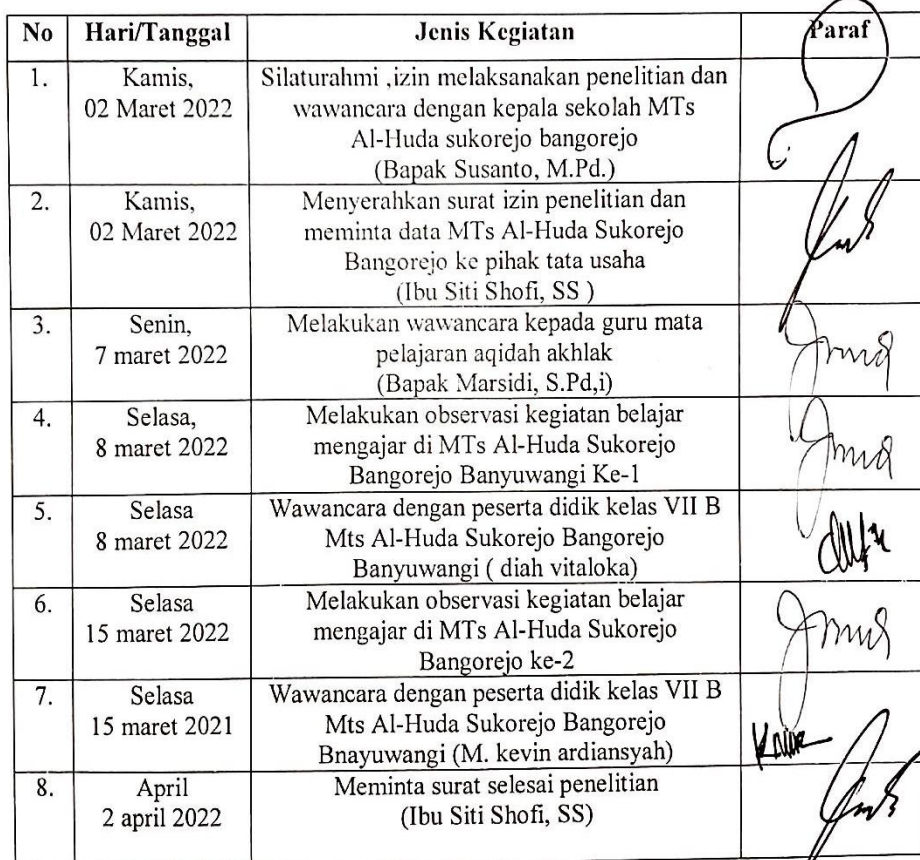 No Hari/Tanggal Jenis Kegiatan Paraf
1. Kamis, 02 Maret 2022 Silaturahmi ,izin melaksanakan penelitian dan
wawancara dengan kepala sekolah MTs
Al-Huda sukorejo bangorejo
(Bapak Susanto, M.Pd.)
2. Kamis, 02 Maret 2022 Menyerahkan surat izin penelitian dan
meminta data MTs Al-Huda Sukorejo
Bangorejo ke pihak tata usaha
(Ibu Siti Shofi, SS )
3. Senin, 7 maret 2022 Melakukan wawancara kepada guru mata
pelajaran aqidah akhlak
(Bapak Marsidi, S.Pd,i)
4. Selasa, 8 maret 2022 Melakukan observasi kegiatan belajar
mengajar di MTs Al-Huda Sukorejo
Bangorejo Banyuwangi Ke-1
5. Selasa 8 maret 2022 Wawancara dengan peserta didik kelas VII B
Mts Al-Huda Sukorejo Bangorejo
Banyuwangi ( diah vitaloka)
6. Selasa 15 maret 2022 Melakukan observasi kegiatan belajar
mengajar di MTs Al-Huda Sukorejo
Bangorejo ke-2
7. Selasa 15 maret 2021 Wawancara dengan peserta didik kelas VII B
Mts Al-Huda Sukorejo Bangorejo
Bnayuwangi (M. kevin ardiansyah)
8. April 2 april 2022 Meminta surat selesai penelitian
(Ibu Siti Shofi, SS)